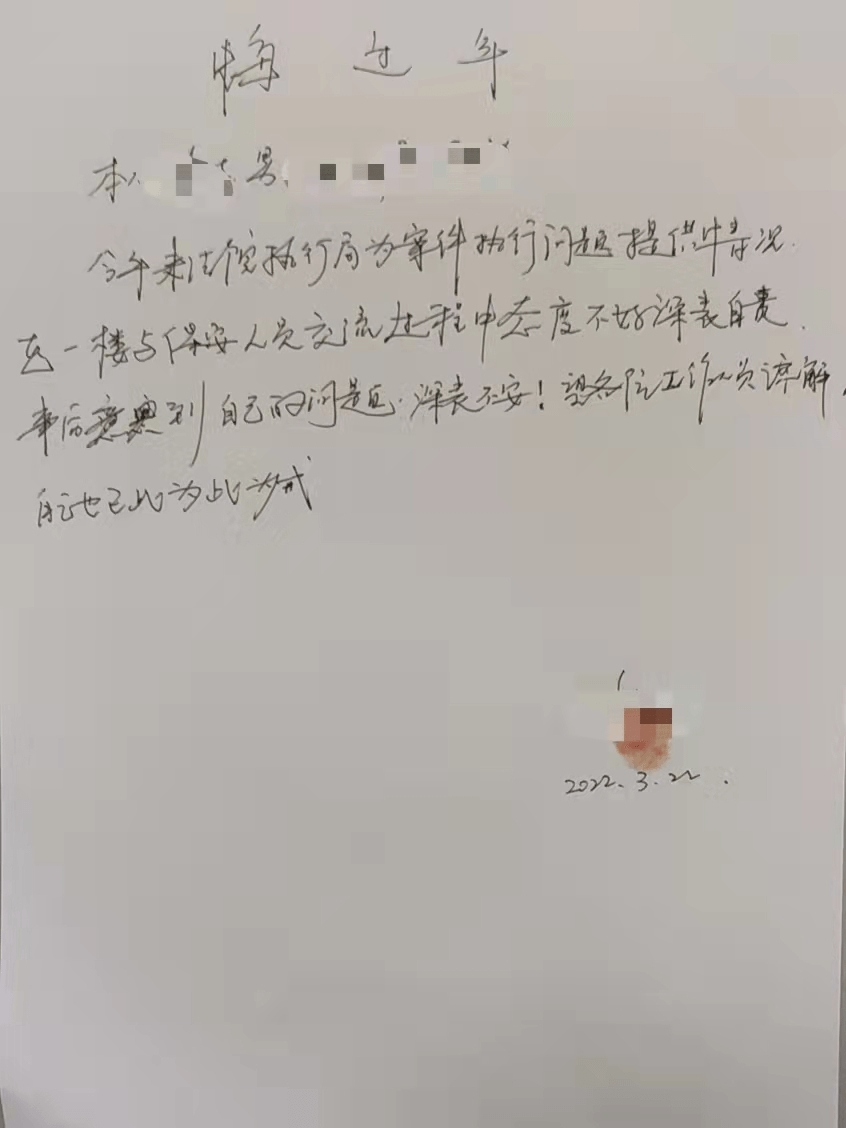 悔过书
本人
今年来法院执行局为案件执行问题提供情况.
在一楼与保安人员交流过程中态度不好深表自责.
事后意识到自己的问题.深表不安!望各位工作人员谅解,
自己也已此为此为戒
2022.3.22.